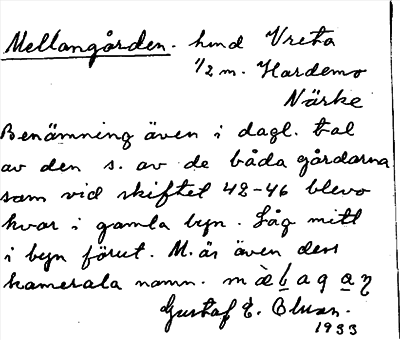 Mellangården. hmd Vreta
1/2 m. Hardemo
Närke
Benämning även i dagl. tal
av den s. av de båda gårdarna
som vid skiftet 42-46 blevo
kvar i gamla byn. Låg mitt
i byn förut. M. är även dess
kamerala namn.
Gustaf E. Olsson.
1933